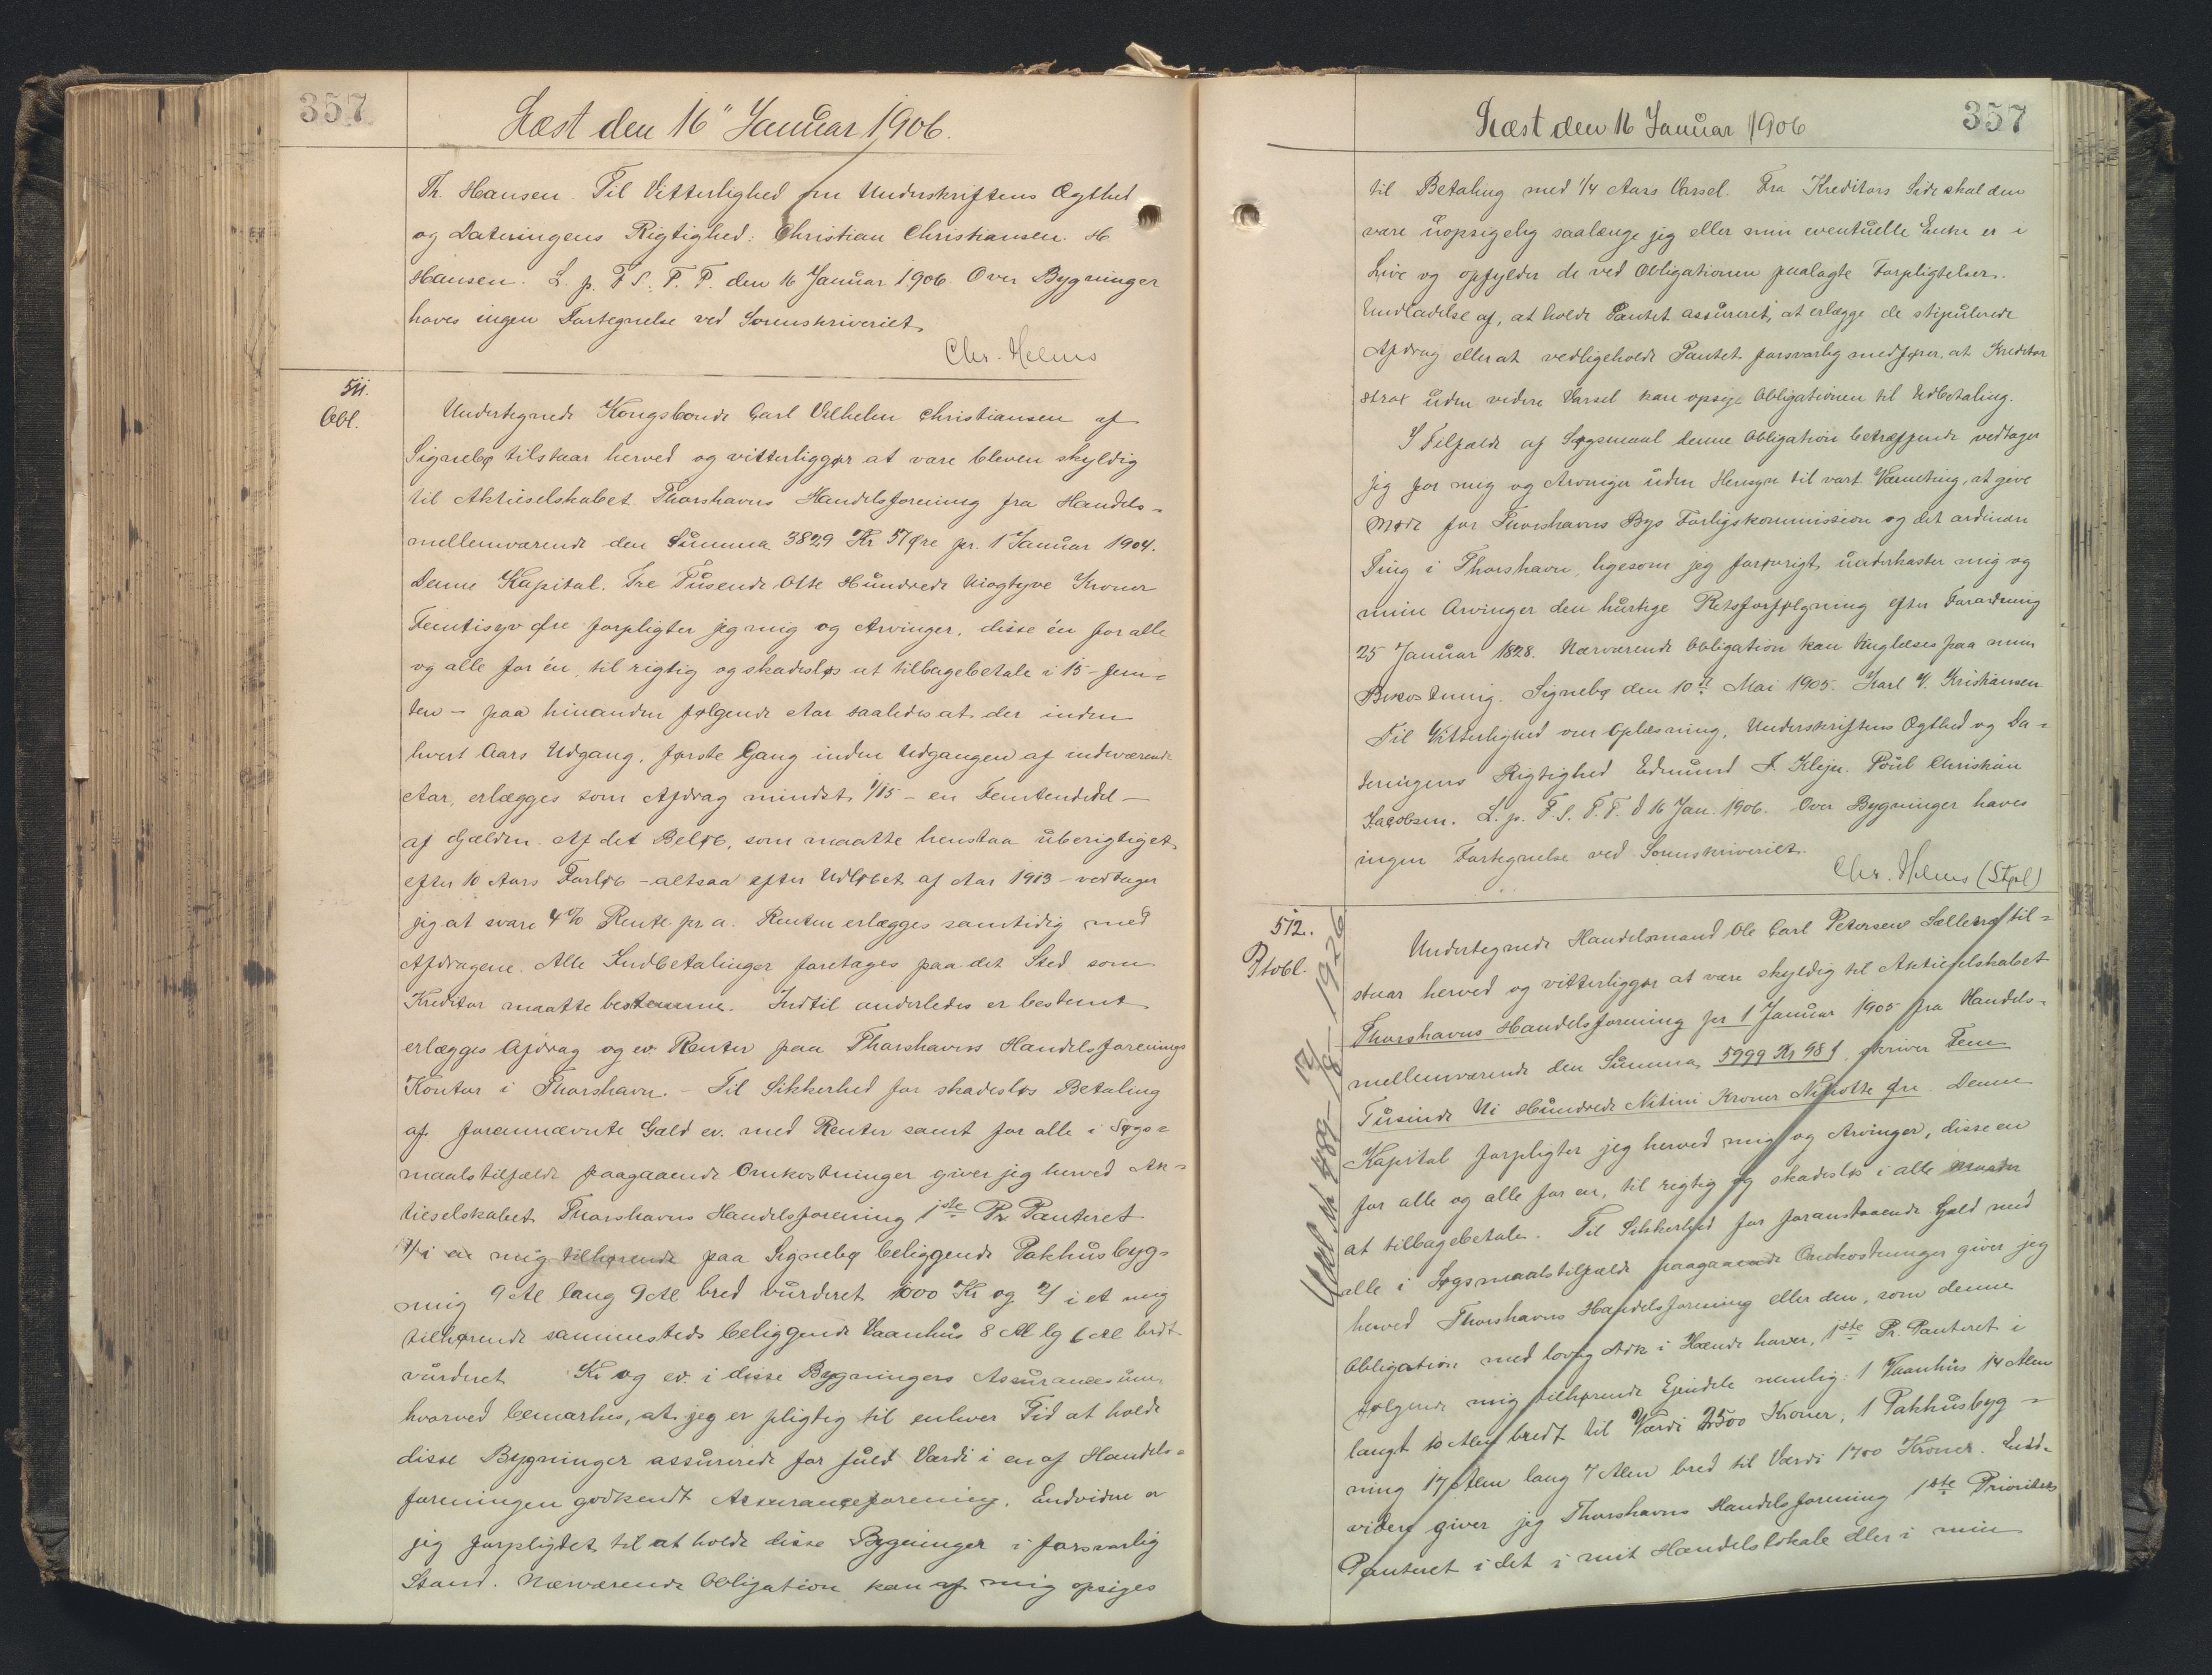 357
Læst den 16" Januar 1906.
Th. Hansen. Til Vitterlighed om Underskriftens Ægthed
og Dateringens Rigtighed: Christian Christiansen. H
Hansen. L. p. F. S. T. P. den 16 Januar 1906. Over Bygninger
haves ingen Fortegnelse ved Sorenskriveriet.
Chr. Helms
511.
Obl.
Undertegnede Kongsbonde Carl Vilhelm Christiansen af
Signebø tilstaar herved og vitterliggør at være bleven skyldig
til Aktieselskabet Thorshavns Handelsforening fra Handels=
mellemværende den Summa 3829 Kr 57 Øre pr. 1 Januar 1904.
Denne Kapital. Tre Tusende Otte Hundrede Niogtyve Kroner
Femtisyv Øre forpligter jeg mig og Arvinger, disse én for alle
og alle for én, til rigtig og skadesløs at tilbagebetale i 15 - fem=
ten - paa hinanden følgende Aar saaledes at der inden
hvert Aars Udgang, første Gang inden Udgangen af indeværende
Aar, erlægges som Afdrag mindst 1/15 - en Femtendedel -
af Gælden. Af det Beløb, som maatte henstaa uberigtiget
efter 10 Aars Forløb - altsaa efter Udløbet af Aar 1913 - vedtager
jeg at svare 4% Rente pr. a. Renten erlægges samtidig med
Afdragene. Alle Indbetalinger foretages paa det Sted som
Kreditor maatte bestemme. Indtil anderledes er bestemt
erlægges Afdrag og ev. Renter paa Thorshavns Handelsforenings
Kontor i Thorshavn. - Til Sikkerhed for skadesløs Betaling
af forannævnte Gæld ev. med Renter samt for alle i Søgs=
maalstilfælde paagaaende Omkostninger giver jeg herved Ak=
tieselskabet Thorshavns Handelsforening 1ste Pr. Panteret
1/ i en mig tilhørende paa Signebø beliggende Pakhusbyg=
ning 9 Al lang 9 Al bred vurderet 1000 Kr og 2/ i et mig
tilhørende sammesteds beliggende Vaanhus 8 Al lg 6 Al bredt
vurderet Kr og ev. i disse Bygningers Assurancesum,
hvorved bemærkes, at jeg er pligtig til enhver Tid at holde
disse Bygninger assurerede for fuld Værdi i en af Handels=
foreningen godkendt Assuranceforening. Endvidere er
jeg forpligtet til at holde disse Bygninger i forsvarlig
Stand. Nærværende Obligation kan af mig opsiges
Læst den 16 Januar 1906
357
til Betaling med 1/4 Aars Varsel. Fra Kreditors Side skal den
være uopsigelig saalænge jeg eller min eventuelle Enke er i
Live og opfylder de ved Obligationen paalagte Forpligtelser.
Undladelse af, at holde Pantet assureret, at erlægge de stipulerede
Afdrag eller at vedligeholde Pantet forsvarlig medfører, at Kreditor
strax uden videre Varsel kan opsige Obligationen til Udbetaling.
I Tilfælde af Søgsmaal denne Obligation betræffende vedtager
jeg for mig og Arvinger uden Hensyn til vort Værneting, at give
Møde for Thorshavns Bys Forligskommission og det ordinære
Ting i Thorshavn, ligesom jeg forøvrigt underkaster mig og
mine Arvinger den hurtige Retsforfølgning efter Forordning
25 Januar 1828. Nærværende Obligation kan tinglæses paa min
Bekostning. Signebø den 10de Mai 1905. Karl V. Kristiansen
Til Vitterlighed om Oplæsning, Underskriftens Ægthed og Da=
teringens Rigtighed Edmund F. Klejn. Poul Christian
Jacobsen. L. p. F. S. T. P. d 16 Jan. 1906. Over Bygninger haves
ingen Fortegnelse ved Sorenskriveriet.
Chr. Helms (Stpl)
512.
Ptobl.
Undertegnede Handelsmand Ole Carl Petersen Selletræ til=
staar herved og vitterliggør at være skyldig til Aktieselskabet
Thorshavns Handelsforening pr 1 Januar 1905 fra Handels=
mellemværende den Summa 5999 Kr 98 Ø, skriver Fem
Tusinde Ni Hundrede Nitini Kroner Nitiotte Øre. Denne
Kapital forpligter jeg herved mig og Arvinger, disse en
for alle og alle for en, til rigtig og skadesløs i alle Maader
at tilbagebetale. Til Sikkerhed for foranstaaende Gæld med
alle i Søgsmaalstilfælde paagaaende Omkostninger giver jeg
herved Thorshavns Handelsforening eller den, som denne
Obligation med lovlig Adk i Hænde haver, 1ste Pr. Panteret i
følgende mig tilhørende Ejendele nemlig: 1 Vaanhus 14 Alen
langt 10 Alen bredt til Værdi 2500 Kroner, 1 Pakhusbyg=
ning 17 Alen lang 7 Alen bred til Værdi 1700 Kroner. End=
videre giver jeg Thorshavns Handelsforening 1ste Prioritets
Panteret i det i mit Handelslokale eller i min